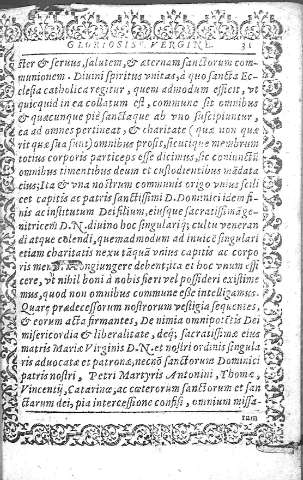 GLORIOSISS. VERGINE. 31
ster & seruus, salutem, & æternam sanctorum com-
munionem. Diuini spiritus vnitas, à quo sancta Ec-
clesia catholica regitur, quem admodum efficit, vt
quicquid in ea collatum est, commune sit omnibus
& quæcunque piè sanctæque ab vno suscipiuntur,
ea ad omnes pertineat, & charitate (quæ non quæ
rit quæ sua sunt) omnibus prosit, sicutique membrum
totius corporis particeps esse dicimus, sic coniunctū
omnibus timentibus deum et custodientibus mādata
eius; Ita & vna nostrum communis origo vnius scili
cet capitis ac patris sanctissimi D. Dominici idem fi-
nis ac institutum Dei filium, eiusque sacratissimā ge-
nitricem D. N. diuino hoc singulariq; cultu veneran
di atque colendi, quemadmodum ad inuicē singulari
etiam charitatis nexu tāquā vnius capitis ac corpo
ris coniungere debent, ita et hoc vnum effi
cere, vt nihil boni à nobis fieri vel possideri existime
mus, quod non omnibus commune esse intelligamus.
Quare prædecessorum nostrorum vestigia sequentes,
& eorum acta firmantes, De nimia omnipotētis Dei
misericordia & liberalitate, deq; sacratissimæ eius
matris Mariæ Virginis D. N. et nostri ordinis singula
ris aduocatæ et patronæ, necnō sanctorum Dominici
patris nostri, Petri Martyris Antonini, Thomæ,
Vincentij, Catarinæ, ac cæterorum sanctorum et san
ctarum dei, pia intercessione confisi, omnium missa-
rum